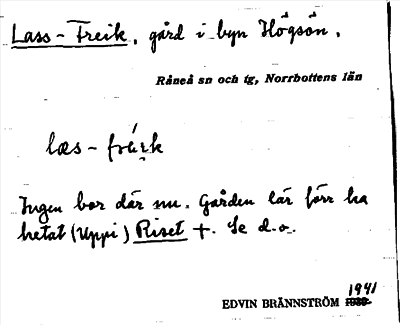 Lass-Freik, gård i byn Högsön.
Råneå sn och tg, Norrbottens län
læs-frǽ̣k
Ingen bor där nu. Gården lär förr ha
hetat (Uppi) Riset +. Se d.o.
1941
EDVIN BRÄNNSTRÖM